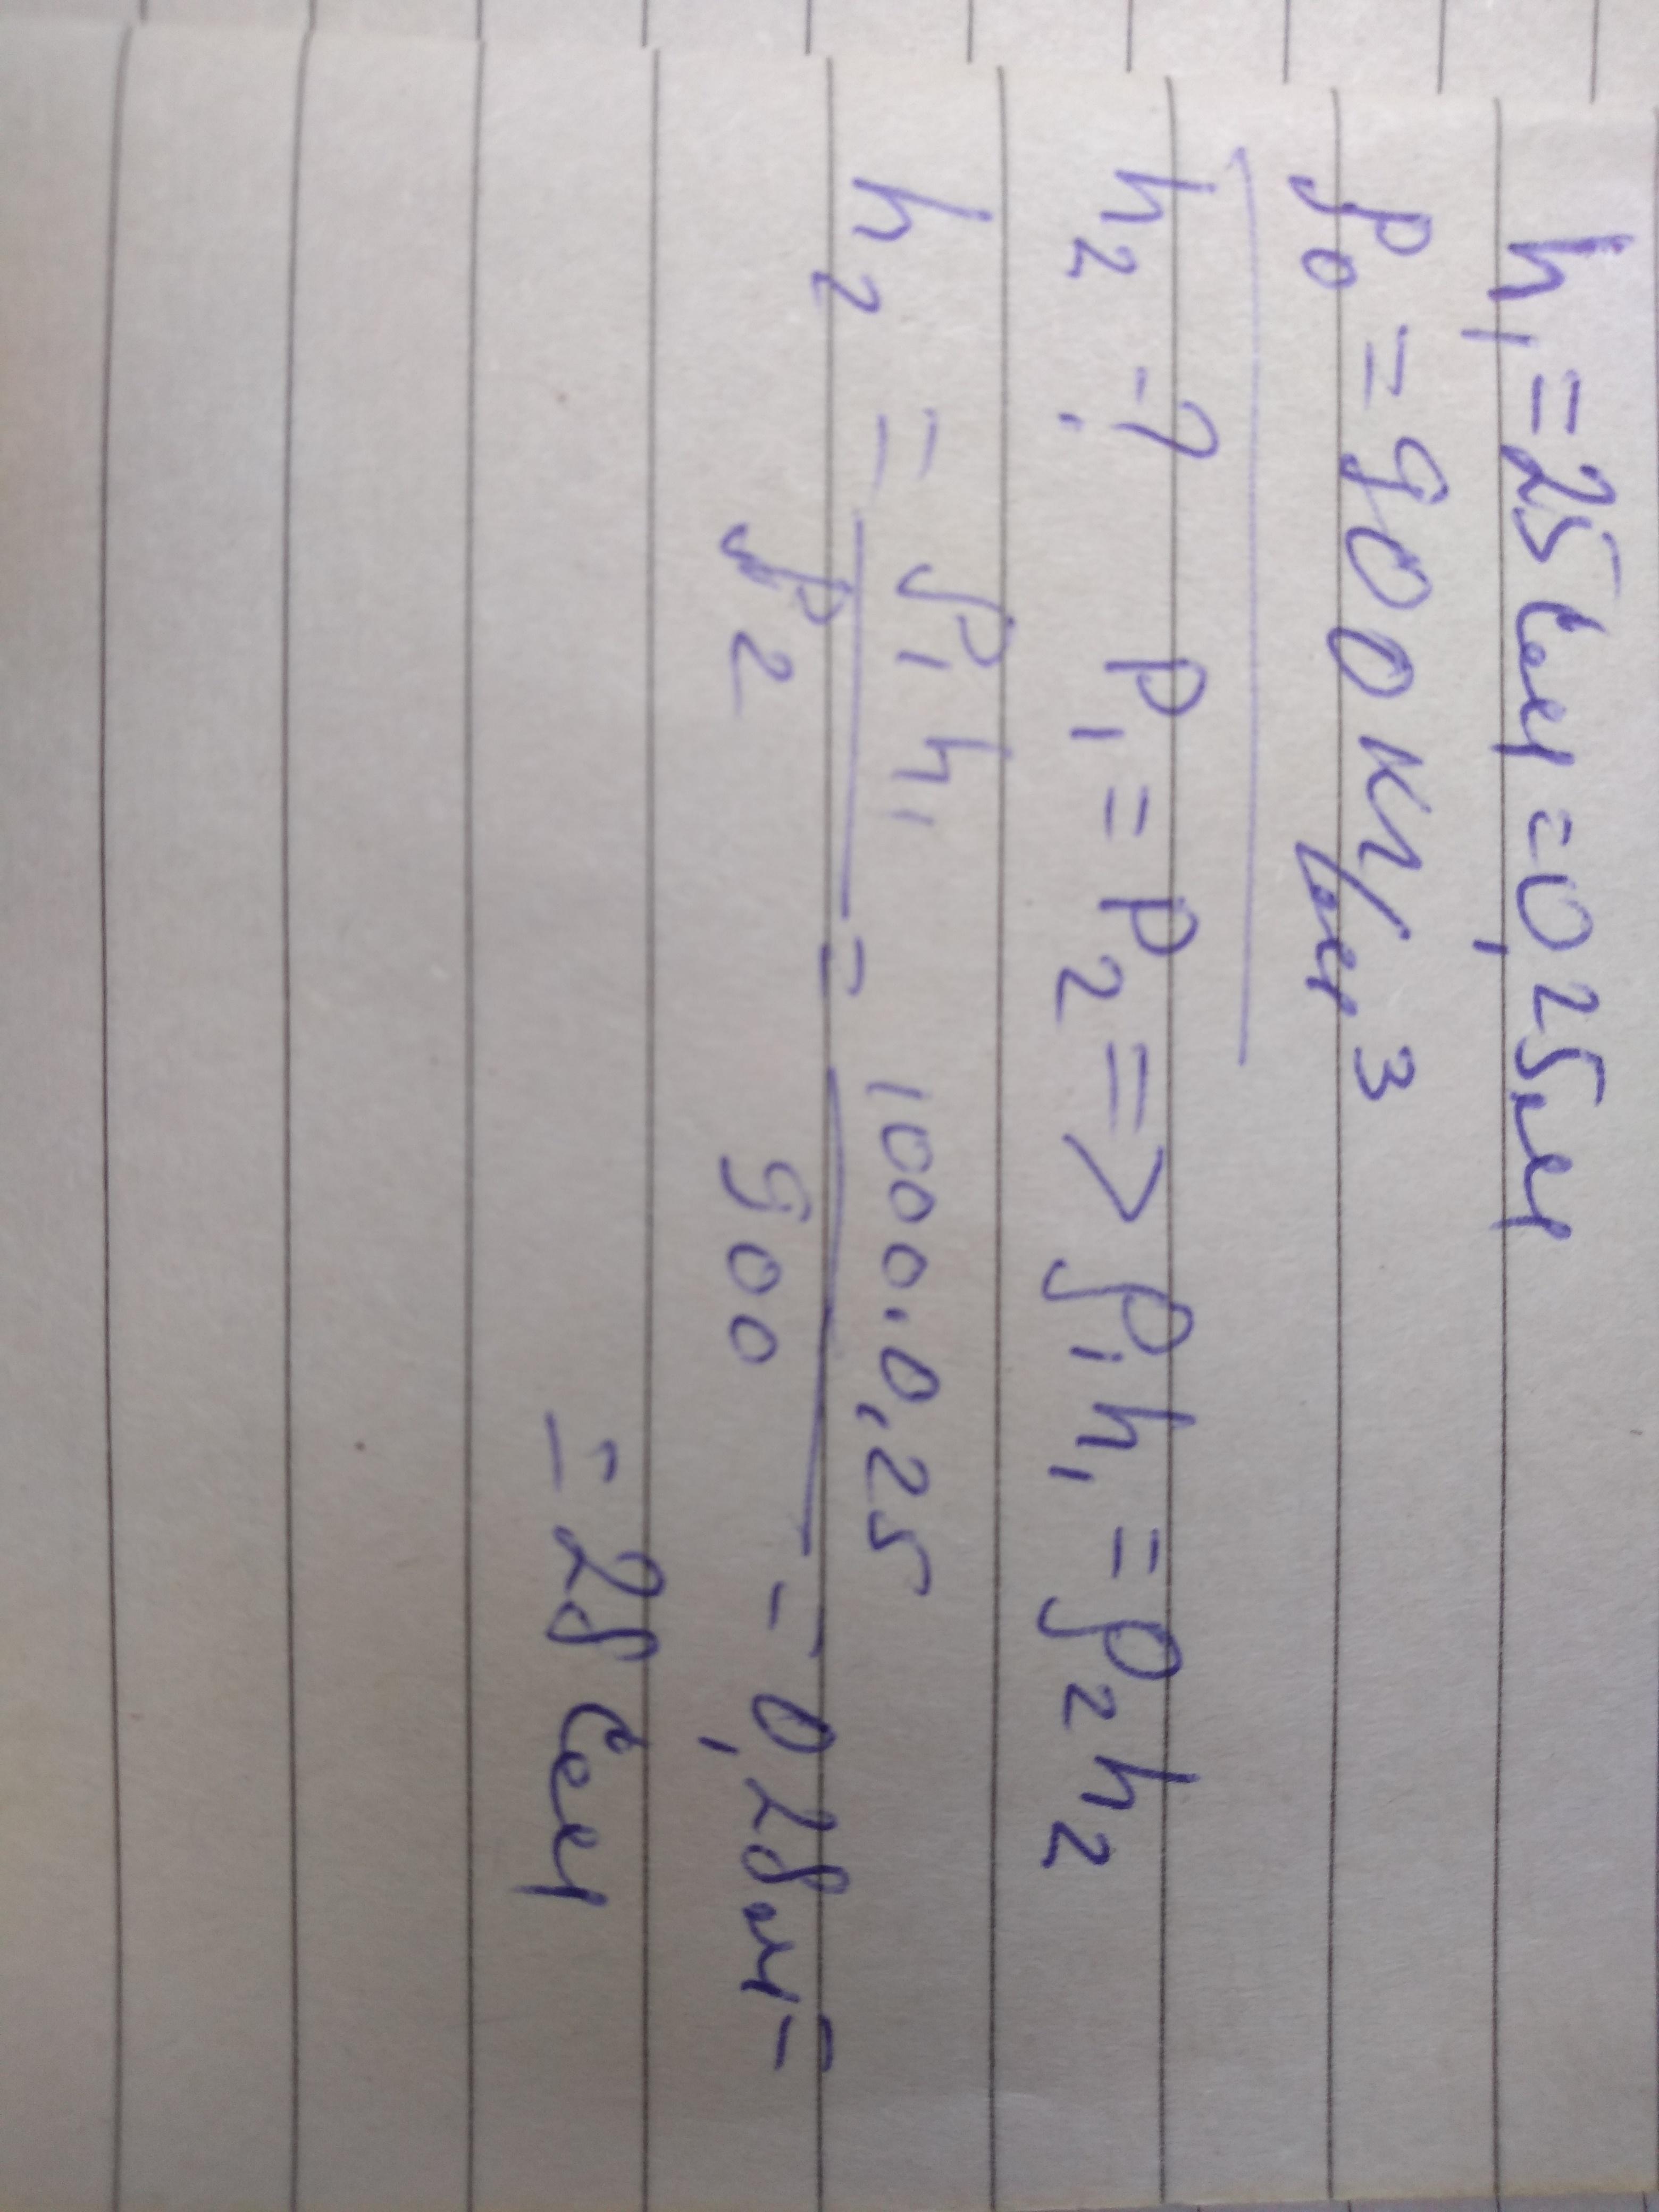 h₁ = 25 см = 0,25 м
ρ₀ = 900 кг/м³
h₂ - ? P₁ = P₂ => ρ₁h₁ = ρ₂h₂
h₂ = ρ₁h₁/ρ₂ = 1000.0,25/900 = 0,28 м =
= 28 см